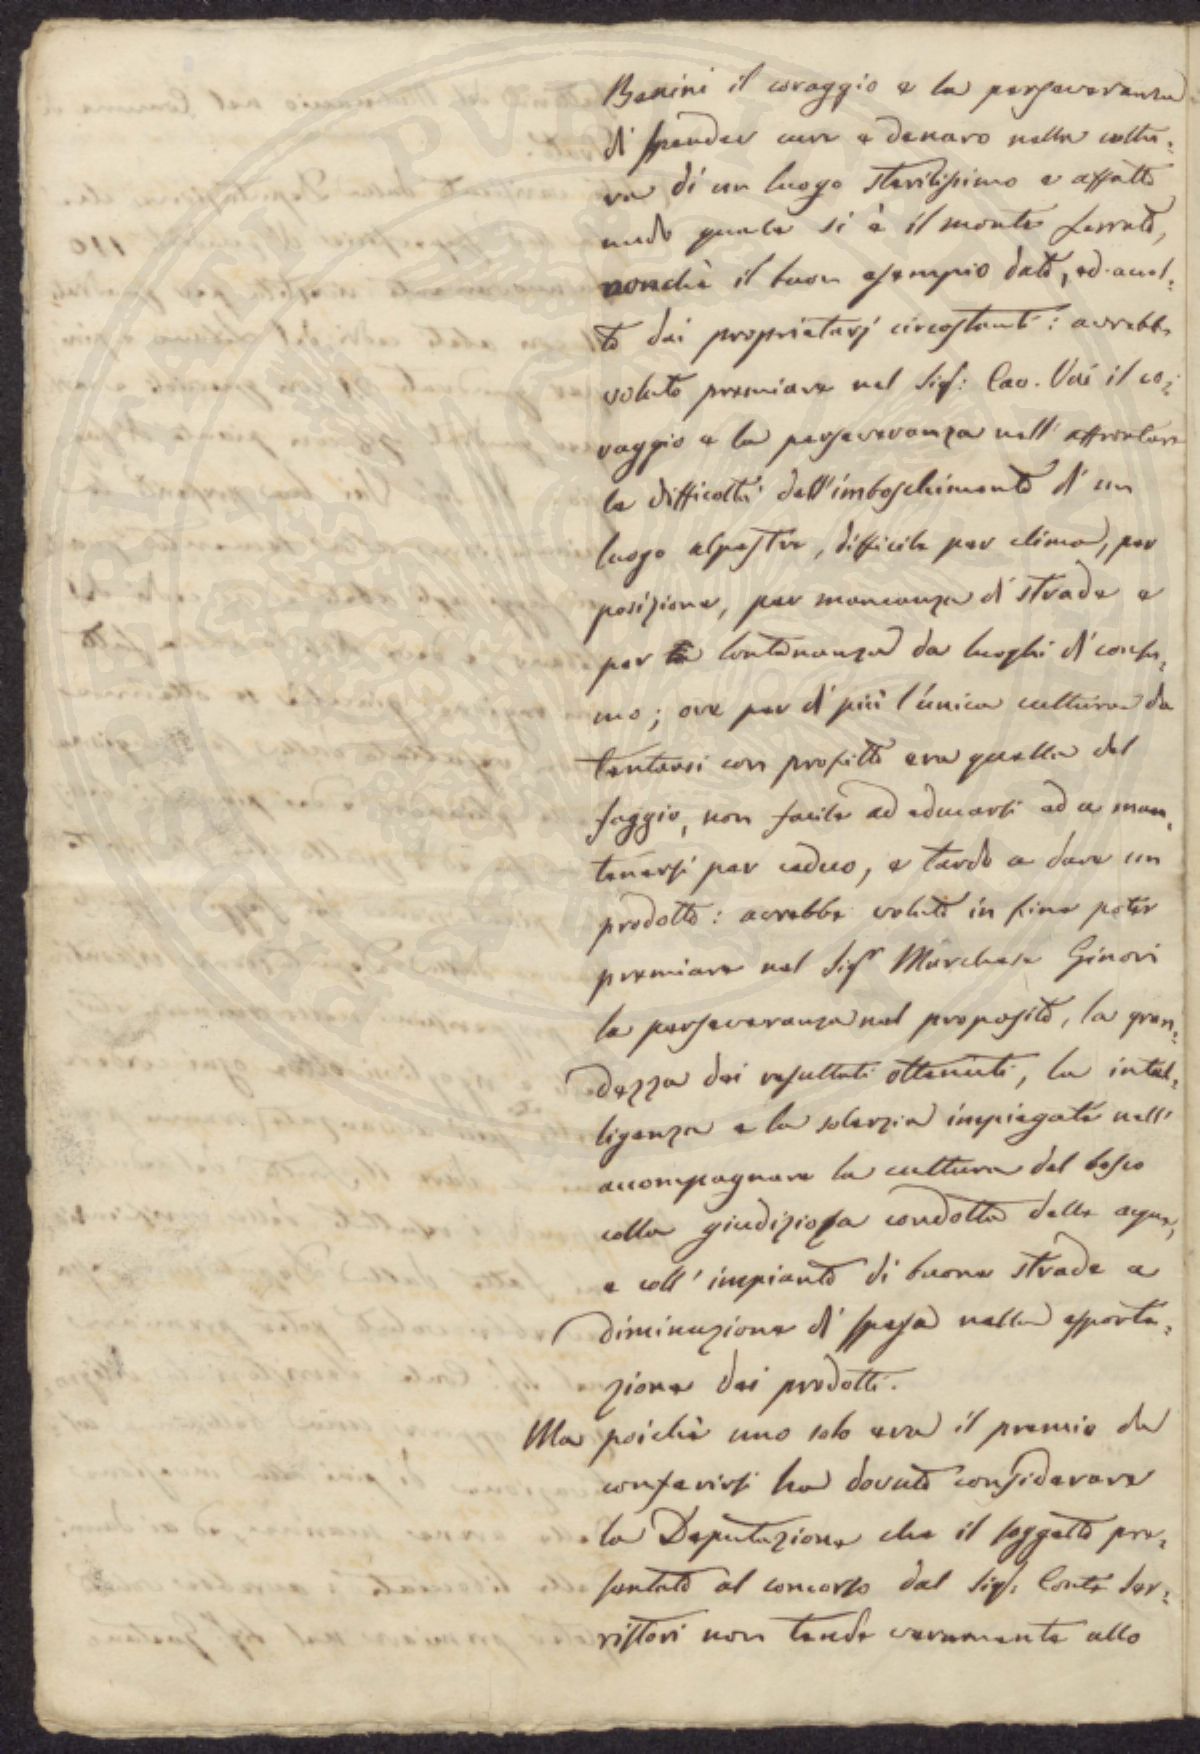 Benini il coraggio e la perseveranza
di spender cure e denaro nella coltu=
ra di un luogo sterilissimo e affatto
nudo quale si è il monte ferrato,
nonchè il buon esempio dato, ed accol=
to dai proprietarj circostanti: avrebbe
voluto premiare nel Sig: Cav. Vai il co=
raggio e la perseveranza nell' affrontare
le difficoltà dell'imboschimento di un
luogo alpestre, difficile per clima, per
posizione, per mancanza di strade e
per lontananza da luoghi di consu=
mo; ove per di più l'unica cultura da
tentarsi con profitto era quella del
faggio, non facile ad educarsi ed a man=
tenersi per ceduo, e tardo a dare un
prodotto: avrebbe voluto in fine poter
premiare nel Sigr Marchese Ginori
la perseveranza nel proposito, la gran=
dezza dei resultati ottenuti, la intel=
ligenza e la solerzia impiegate nell'
accompagnare la cultura del bosco
colla giudiziosa condotta delle acque,
e coll' impianto di buone strade a
diminuzione di spesa nella esporta=
zione dei prodotti.
Ma poichè uno solo era il premio da
conferirsi ha dovuto considerare
la Deputazione che il soggetto pre=
sentato al concorso dal Sig: Conte Ser=
ristori non tende veramente allo